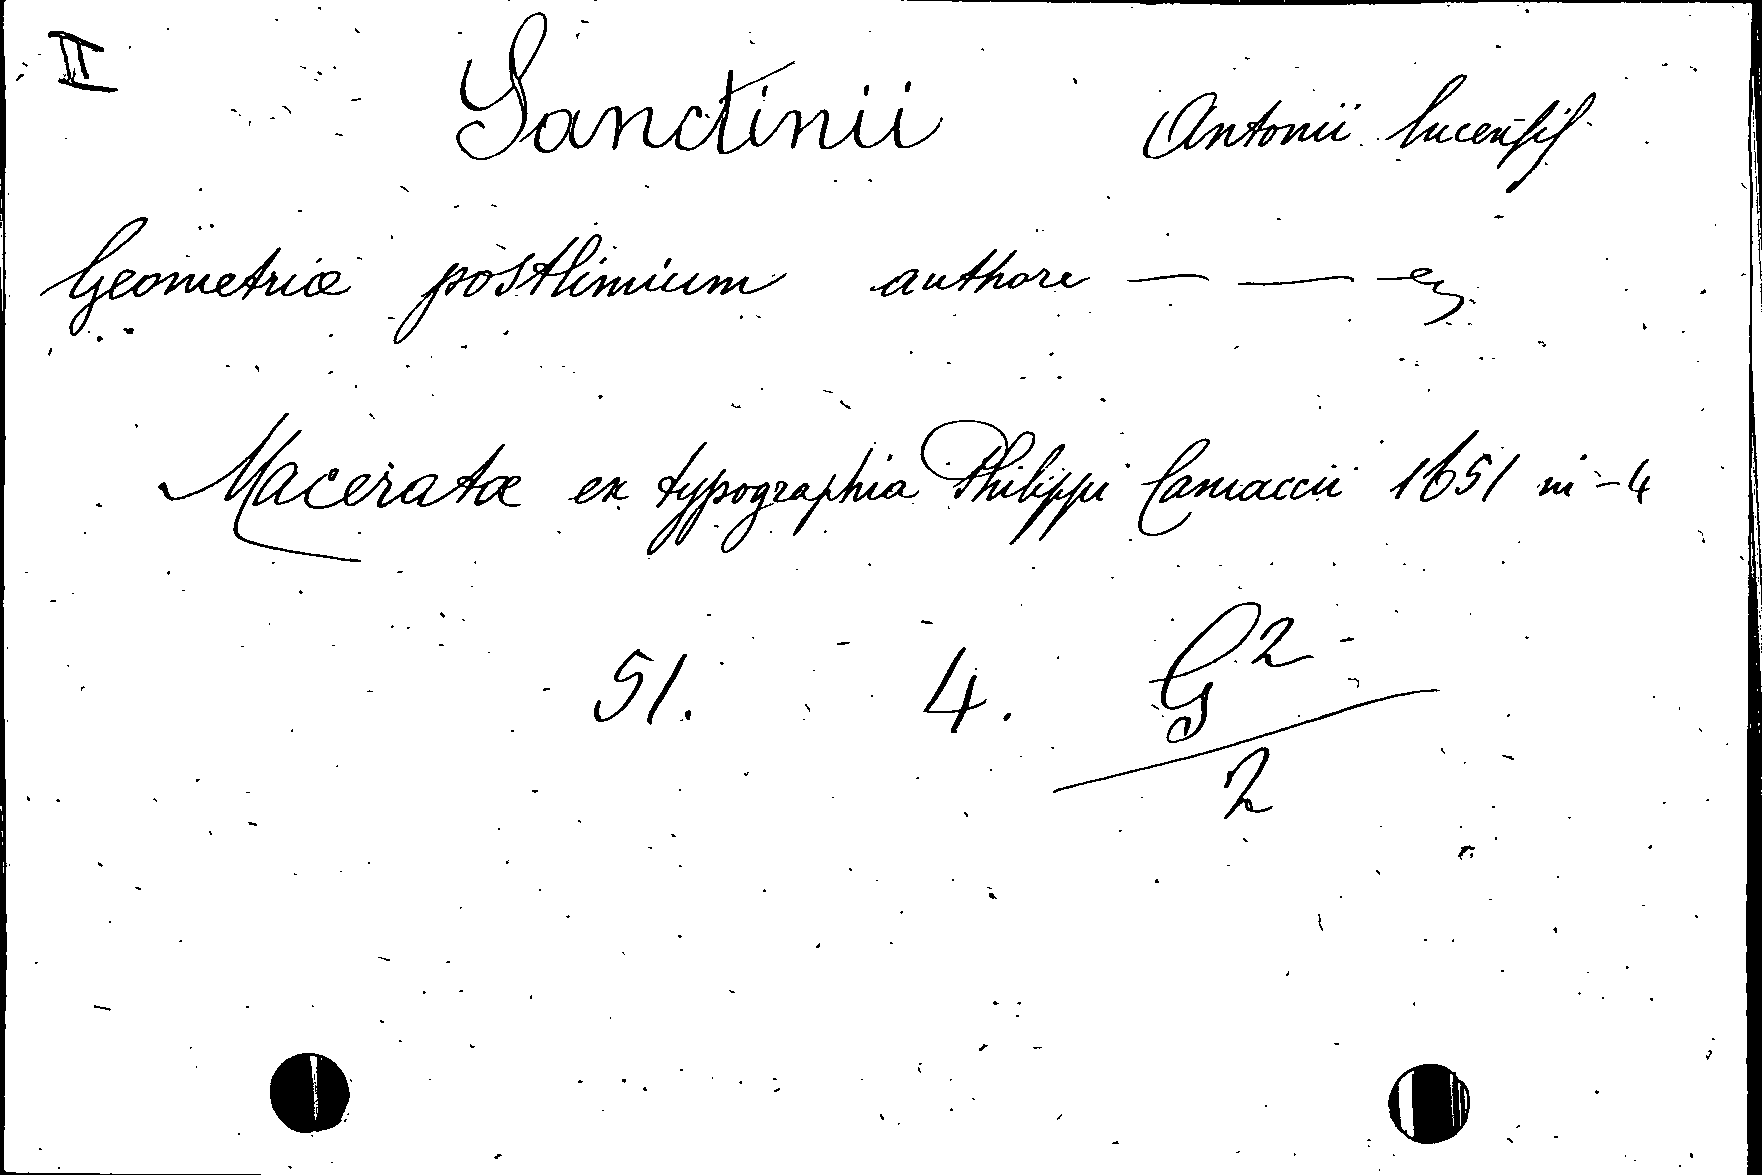 II
Sanctinii Antonii lucensis
Geometriæ postlimium authore — — —
Maceratæ ex typographia Philippi Camaccii 1651 in-4
51. 4. G²
2